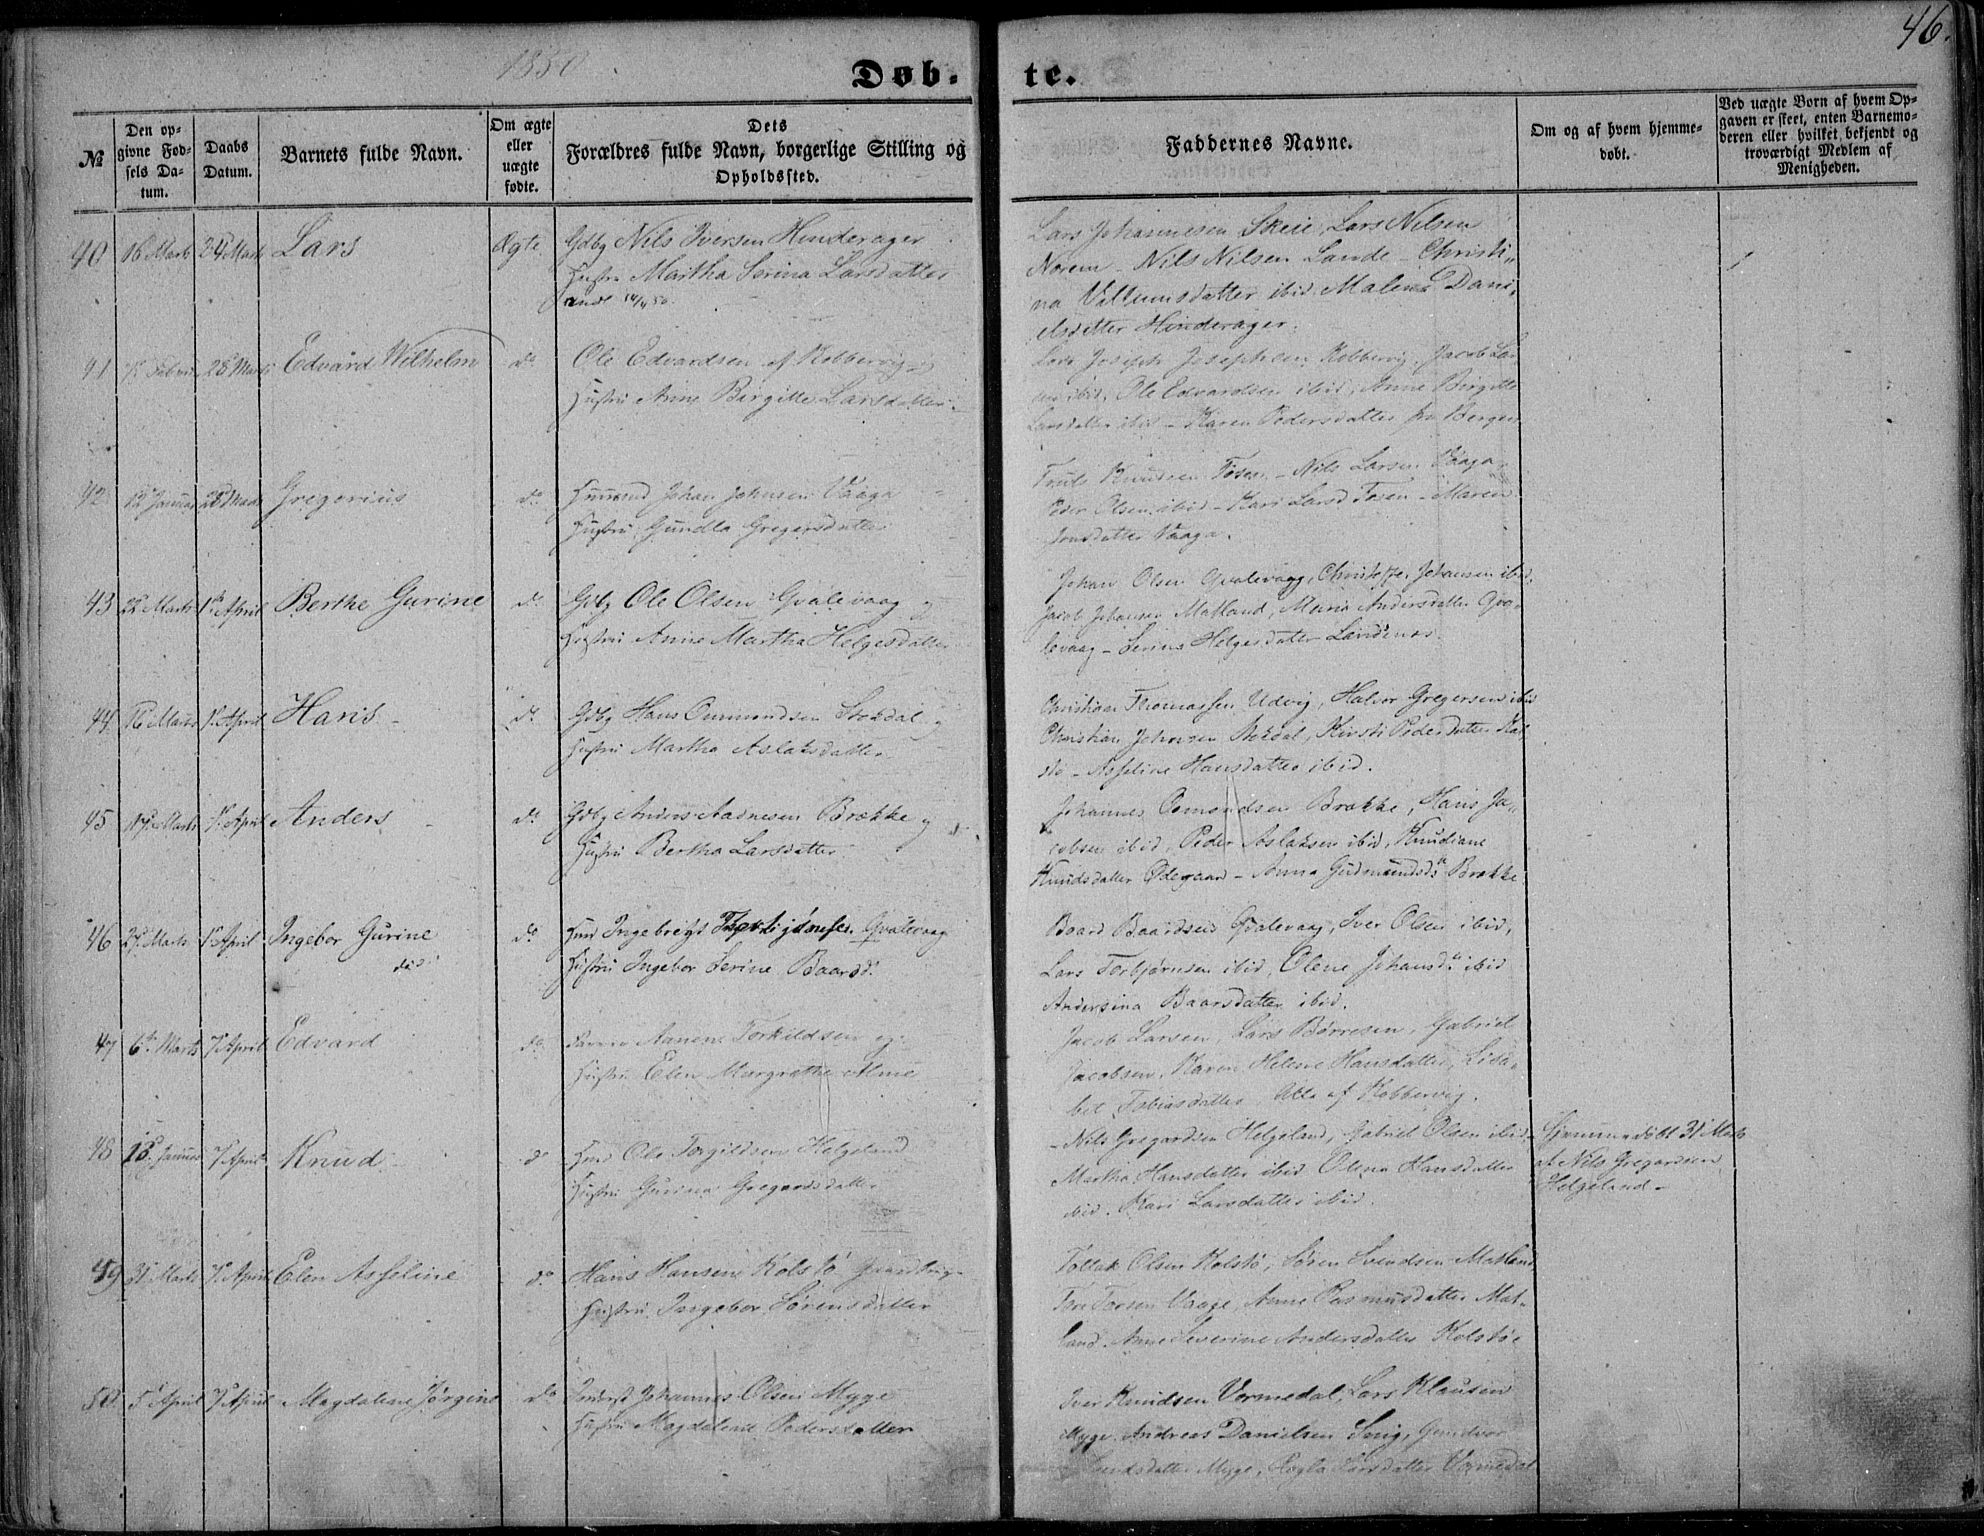 46.
1850
Døb. te.
№
Den opgivne Fødsels Datum.
Daabs Datum.
Barnets fulde Navn.
Om ægte eller uægte fødte.
Dets Forældres fulde Navn, borgerlige Stilling og Opholdssted.
Faddernes Navne.
Om og af hvem hjemmedøbt.
Ved uægte Børn af hvem Opgaven er skeet, enten Barnemoderen eller hvilket bekjendt og troværdigt Medlem af Menigheden.
40 16 Marts 24 Marts Lars Ægte Gdbg Nils Iversen Hinderager
Hustru Martha Serina Larsdatter
Lars Johannesen Skeie, Lars Nilsen
Norem - Nils Nilsen Sande - Christi„
na Villumsdatter ibid Malena Dani„
elsdatter Hinderager.
41 28 Marts Edvard Wilhelm do Ole Edvardsen af Kobbervig og
Hustru Anne Birgitte Larsdatter.
Joseph Josephsen Kobbervig, Jacob Lar
sen ibid, Ole Edvardsen ibid, Anne Birgitte
Larsdatter ibid - Karen Pedersdatter fra Bergen
42 12 Januar 28 Marts Gregorius do Huusmd Johan Johnsen Vaaga
Hustru Gundla Gregersdatter
Truls Knudsen Tosen - Nils Larsen Vaaga,
Peder Olsen ibid - Kari Larsd Tosen - Maren
Jonsdatter Vaaga.
43 22 Marts 1ste April Berthe Gurine do Gdbg Ole Olsen Gvalevaag og
Hustru Anne Martha Helgesdatter
Johan Olsen Qvalevaag, Christoffer Johansen ibid,
Jacob Johansen Matland, Maria Andersdatter Qva„
levaag - Serina Helgesdatter Landenes
44 16 Marts 1ste April Hans - do Gdbg Hans Ommondsen Stokdal og
Hustru Martha Aslaksdatter
Christian Thomassen Udvig, Halvor Gregersen ibid
Christian Johnsen Stokdal, Kirsti Pedersdatter Kol
stø - Asseline Hansdatter ibid.
45 17 Marts 1ste April Anders - do Gdbg Anders Aadnesen Brække og
Hustru Bertha Larsdatter
Johannes Osmondsen Brække, Hans Ja„
cobsen ibid, Peder Aslaksen ibid, Knudiane
Knudsdatter Ødegaard - Anna Gudmundsdr Brække
46 27 Marts 1 April Ingebor Gurine do Huusmd Ingebrigt Torbjørnsen Qvalevaag
død Hustru Ingebor Serine Baardsd.
Baard Baardsen Qvalevaag, Iver Olsen ibid,
Lars Torbjørnsen ibid, Olene Johansdr ibid
Andersina Baarsdatter ibid.
47 6te Marts 7 April Edvard do Aanen Torkildsen og
Hustru Elen Margrethe Alme
Jacob Larsen, Lars Børresen, Gabriel
Jacobsen, Karen Helene Hansdatter, Lisa„
bet Tobiasdatter Alle af Kobbervig.
48 18 Januar 7 April Knud do Huusmd Ole Torgildsen Helgeland
Hustru Gurina Gregardsdatter
- Nils Gregardsen Helgeland, Gabriel Olsen ibid -
Martha Hansdatter ibid Olena Hansdatter
ibid. Kari Larsdatter ibid.
Hjemmedøbt 31 Marts
af Nils Gregardsen
Helgeland -
49 31 Marts 7 April Elen Asseline do Hans Hansen Kolstø Gaardbrug.
Hustru Ingebor Sørensdatter
Tollak Olsen Kolstø, Søren Svendsen Matland
Tore Torsen Vaage, Anne Rasmusdatter Mat„
land. Anne Severine Andersdatter Kolstø.
50 5 April 7 April Magdalene Jørgine do Inderst Johannes Olsen Myge
Hustru Magdelene Pedersdatter
Iver Knudsen Vormedal, Lars Klausen
Myge. Andreas Danielsen Snig, Gundvor
Myge, Larsdatter Vormedal